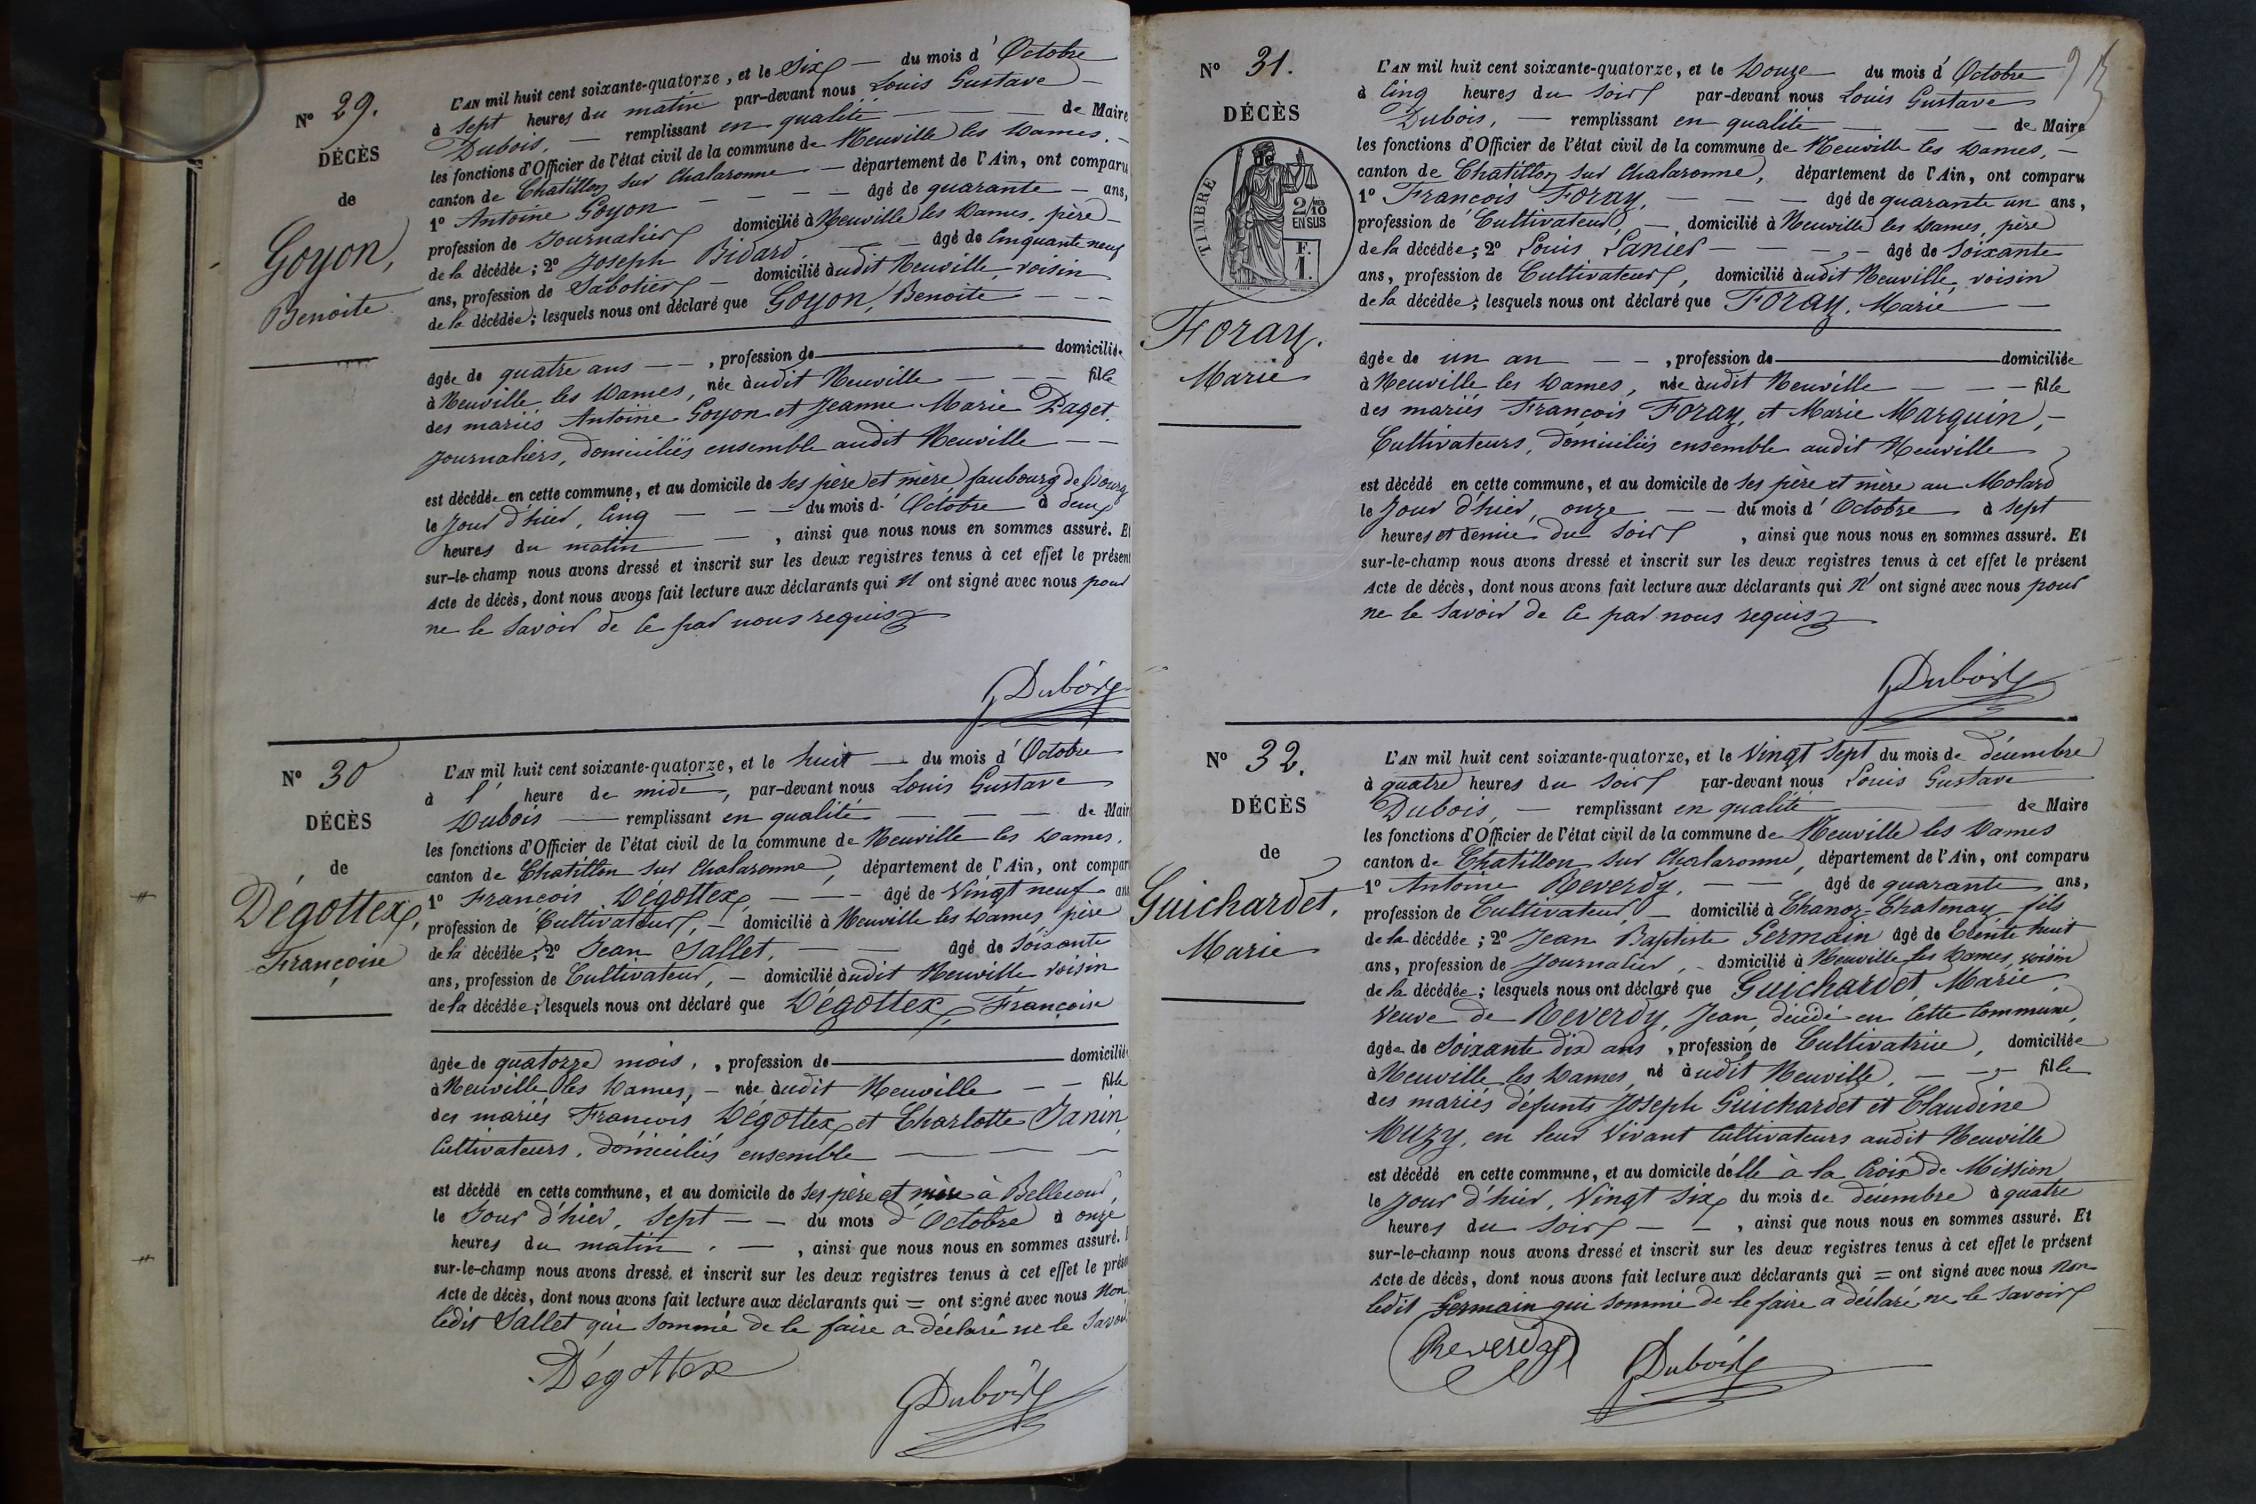 N° 29.
DÉCÈS
de
Goyon,
Benoite
L'AN mil huit cent soixante-quatorze, et le Six — du mois d'Octobre
à sept heures du matin par-devant nous Louis Gustave
Dubois, — remplissant en qualité — — — de Maire
les fonctions d'Officier de l'état civil de la commune de Neuville les Dames. —
canton de Chatillon sur Chalaronne — département de l'Ain, ont comparu
1° Antoine Goyon — — — âgé de quarante — ans,
profession de Journalier domicilié à Neuville les Dames, père —
de la décédée; 2° Joseph Bidard, — — âgé de Cinquante neuf
ans, profession de Sabotier — domicilié audit Neuville — voisin
de la décédée; lesquels nous ont déclaré que Goyon, Benoite — — —
âgée de quatre ans — —, profession de — domiciliée
à Neuville les Dames, née audit Neuville — — — fille
des mariés Antoine Goyon et Jeanne Marie Paget.
journaliers, domiciliés ensemble audit Neuville — —
est décédée en cette commune, et au domicile de ses père et mère faubourg de Bourg
le Jour d'hier, Cinq — — — du mois d'Octobre à deux
heures du matin — , ainsi que nous nous en sommes assuré. Et
sur-le-champ nous avons dressé et inscrit sur les deux registres tenus à cet effet le présent
Acte de décès, dont nous avons fait lecture aux déclarants qui n'ont signé avec nous pour
ne le savoir de ce par nous requis
Dubois
N° 30
DÉCÈS
de
Dégottex,
Françoise
L'AN mil huit cent soixante-quatorze, et le huit — du mois d'Octobre
à l'heure de midi, par-devant nous Louis Gustave
Dubois — remplissant en qualité — — — de Mair
les fonctions d'Officier de l'état civil de la commune de Neuville les Dames.
canton de Chatillon sur Chalaronne, département de l'Ain, ont compar
1° François Dégottex, — — — âgé de Vingt neuf ans
profession de Cultivateur, — domicilié à Neuville les Dames père
de la décédée; 2° Jean Sallet, — — âgé de Soixante
ans, profession de Cultivateur, — domicilié audit Neuville voisin
de la décédée; lesquels nous ont déclaré que Dégottex, Françoise
âgée de quatorze mois. , profession de — domiciliée
à Neuville les Dames, — née audit Neuville — — fille
des mariés François Dégottex et Charlotte Janin
Cultivateurs, domiciliés ensemble — — —
est décédé en cette commune, et au domicile de ses père et mère à Bellecour,
le Jour d'hier, Sept — — du mois d'Octobre à onze
heures du matin. — , ainsi que nous nous en sommes assuré.
sur-le-champ nous avons dressé et inscrit sur les deux registres tenus à cet effet le présen
Acte de décès, dont nous avons fait lecture aux déclarants qui = ont signé avec nous Non
ledit Sallet qui sommé de le faire a déclaré ne le savoir
Dégottex
Dubois
N° 31.
DÉCÈS
TIMBRE
2/10
EN SUS
F.
1.
Foray.
Marie
L'AN mil huit cent soixante-quatorze, et le Douze du mois d'Octobre
à Cinq heures du soir par-devant nous Louis Gustave
Dubois, — remplissant en qualité — — — de Maire
les fonctions d'Officier de l'état civil de la commune de Neuville les Dames, —
canton de Chatillon sur Chalaronne, département de l'Ain, ont comparu
1° François Foray, — — — âgé de quarante un ans,
profession de Cultivateur, — domicilié à Neuville les Dames, père
de la décédée; 2° Louis Lanier — — — — âgé de Soixante
ans, profession de Cultivateur, domicilié audit Neuville, voisin
de la décédée; lesquels nous ont déclaré que Foray, Marie —
âgée de un an — —, profession de — domiciliée
à Neuville les Dames, née audit Neuville — — — fille
des mariés François Foray, et Marie Marguin, —
Cultivateurs, domiciliés ensemble audit Neuville
est décédé en cette commune, et au domicile de ses père et mère au Molard
le Jour d'hier, onze — — du mois d'Octobre à sept
heures et demie du Soir , ainsi que nous nous en sommes assuré. Et
sur-le-champ nous avons dressé et inscrit sur les deux registres tenus à cet effet le présent
Acte de décès, dont nous avons fait lecture aux déclarants qui n'ont signé avec nous pour
ne le savoir de ce par nous requis
Dubois
N° 32.
DÉCÈS
de
Guichardet,
Marie
L'AN mil huit cent soixante-quatorze, et le Vingt Sept du mois de décembre
à quatre heures du soir par-devant nous Louis Gustave
Dubois, — remplissant en qualité — de Maire
les fonctions d'Officier de l'état civil de la commune de Neuville les Dames
canton de Chatillon sur Chalaronne, département de l'Ain, ont comparu
1° Antoine Reverdy, — — âgé de quarante ans,
profession de Cultivateur — domicilié à Chanoz-Chatenay fils
de la décédée; 2° Jean Baptiste Germain âgé de trente huit
ans, profession de Journalier, — domicilié à Neuville les Dames, voisin
de la décédée; lesquels nous ont déclaré que Guichardet, Marie,
Veuve de Reverdy, Jean, décédé en Cette Commune,
âgée de Soixante dix ans, profession de Cultivatrice, domiciliée
à Neuville les Dames, né audit Neuville, — — fille
des mariés défunts Joseph Guichardet et Claudine
Muzy, en leur Vivant Cultivateurs audit Neuville
est décédé en cette commune, et au domicile d'elle à la Croix de Mission
le Jour d'hier, Vingt Six du mois de décembre à quatre
heures du Soir — — , ainsi que nous nous en sommes assuré. Et
sur-le-champ nous avons dressé et inscrit sur les deux registres tenus à cet effet le présent
Acte de décès, dont nous avons fait lecture aux déclarants qui = ont signé avec nous Non
ledit Germain qui sommé de le faire a déclaré ne le savoir
Reverdy
Dubois